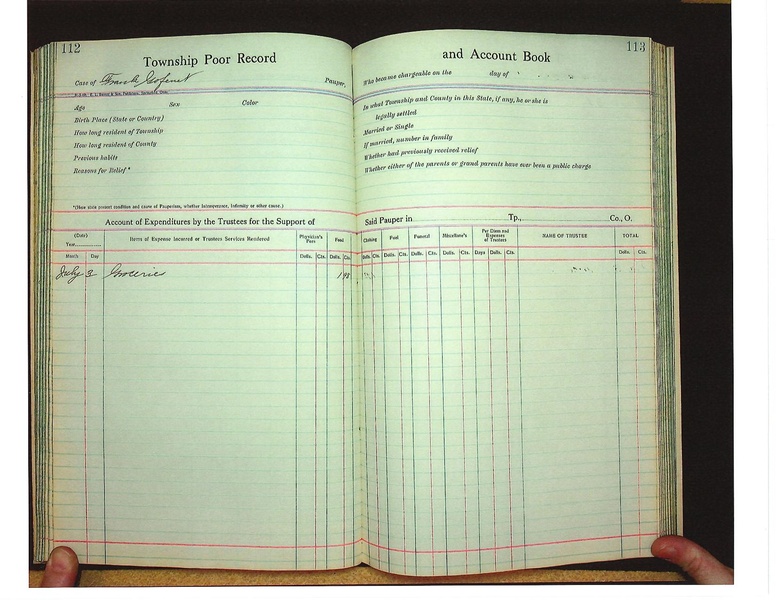 112
Township Poor Record
Case of Frank Pauper,
Age Sex Color
Birth Place (State or Country)
How long resident of Township
How long resident of County
Previous habits
Reasons for Relief*
*(Here state present condition and cause of Pauperism, whether Intemperance, Infirmity or other cause.)
Account of Expenditures by the Trustees for the Support of
(Date) Items of Expense Incurred or Trustees Services Rendered Physician's Fees Food
Year
Month Day Dolls. Cts. Dolls. Cts.
July 3 Groceries 1 98
and Account Book 113
Who became chargeable on the day of
In what Township and County in this State, if any, he or she is
legally settled
Married or Single
If married, number in family
Whether had previously received relief
Whether either of the parents or grand parents have ever been a public charge
Said Pauper in Tp., Co., O.
Clothing Fuel Funeral Miscellane's Per Diem and Expenses of Trustees NAME OF TRUSTEE TOTAL
Dolls. Cts. Dolls. Cts. Dolls. Cts. Dolls. Cts. Days Dolls. Cts. Dolls. Cts.